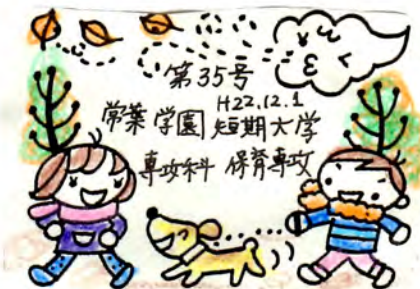 第35号
H22.12.1
常葉学園短期大学
専攻科 保育専攻